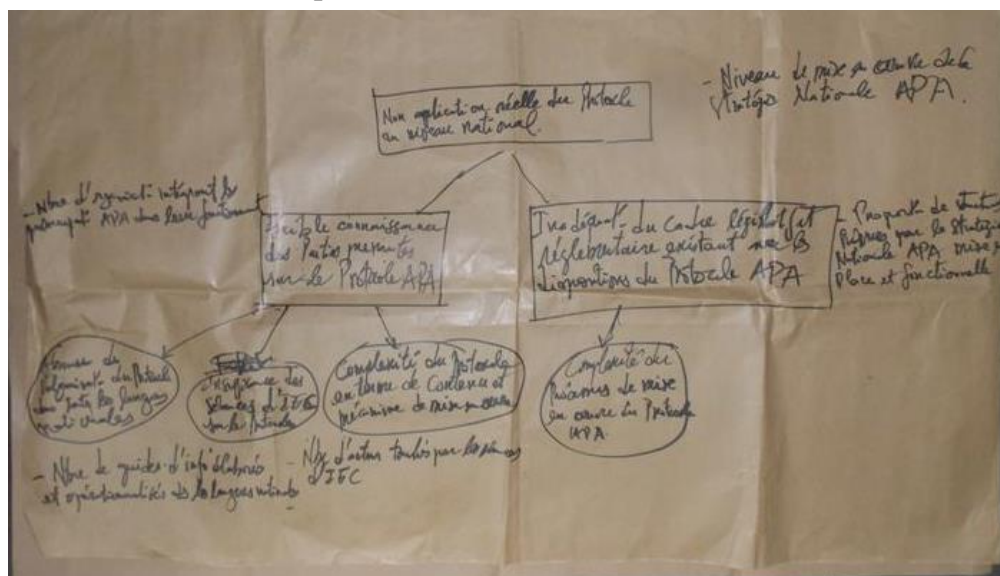 Non application réelle du Protocole
au niveau national.
- Niveau de mise en œuvre de la
Stratégie Nationale APA.
- Nbre d'organisat° intégrant les
APA dans leur
Faible connaissance
des Parties prenantes
sur le Protocole APA
du cadre législatif et
réglementaire existant avec les
dispositions du Protocole APA
- Proport° de
par la Stratégie
Nationale APA mise en
Place et fonctionnelle
du Protocole
dans toutes les langues
nationales
Insuffisance des
séances d'IEC
sur le Protocole
Complexité du Protocole
en terme de Contenu et
mécanisme de mise en œuvre
Complexité du
Processus de mise
en œuvre du Protocole
APA.
- Nbre de guides d'info élaborés
et opérationnalisés ds les langues nationales
- Nbre d'acteurs touchés par les séances
d'IEC